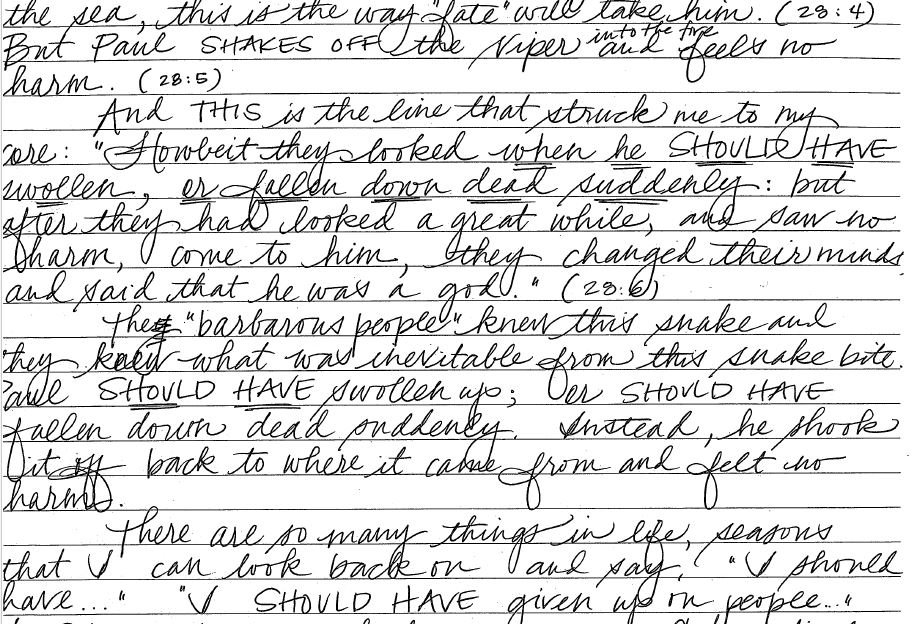 the sea, this is the way "fate" will take him. (28:4)
But Paul SHAKES OFF the viper into the fire and feels no
harm. (28:5)
And THIS is the line that struck me to my
core: "Howbeit they looked when he SHOULD HAVE
swollen, or fallen down dead suddenly: but
after they had looked a great while, and saw no
harm, come to him, they changed their minds,
and said that he was a god." (28:6)
These "barbarous people" knew this snake and
they knew what was inevitable from this snake bite.
Paul SHOULD HAVE swollen up; or SHOULD HAVE
fallen down dead suddenly. Instead, he shook
it off back to where it came from and felt no
harm.
There are so many things in life, seasons
that I can look back on and say, "I should
have..." "I SHOULD HAVE given up on people..."